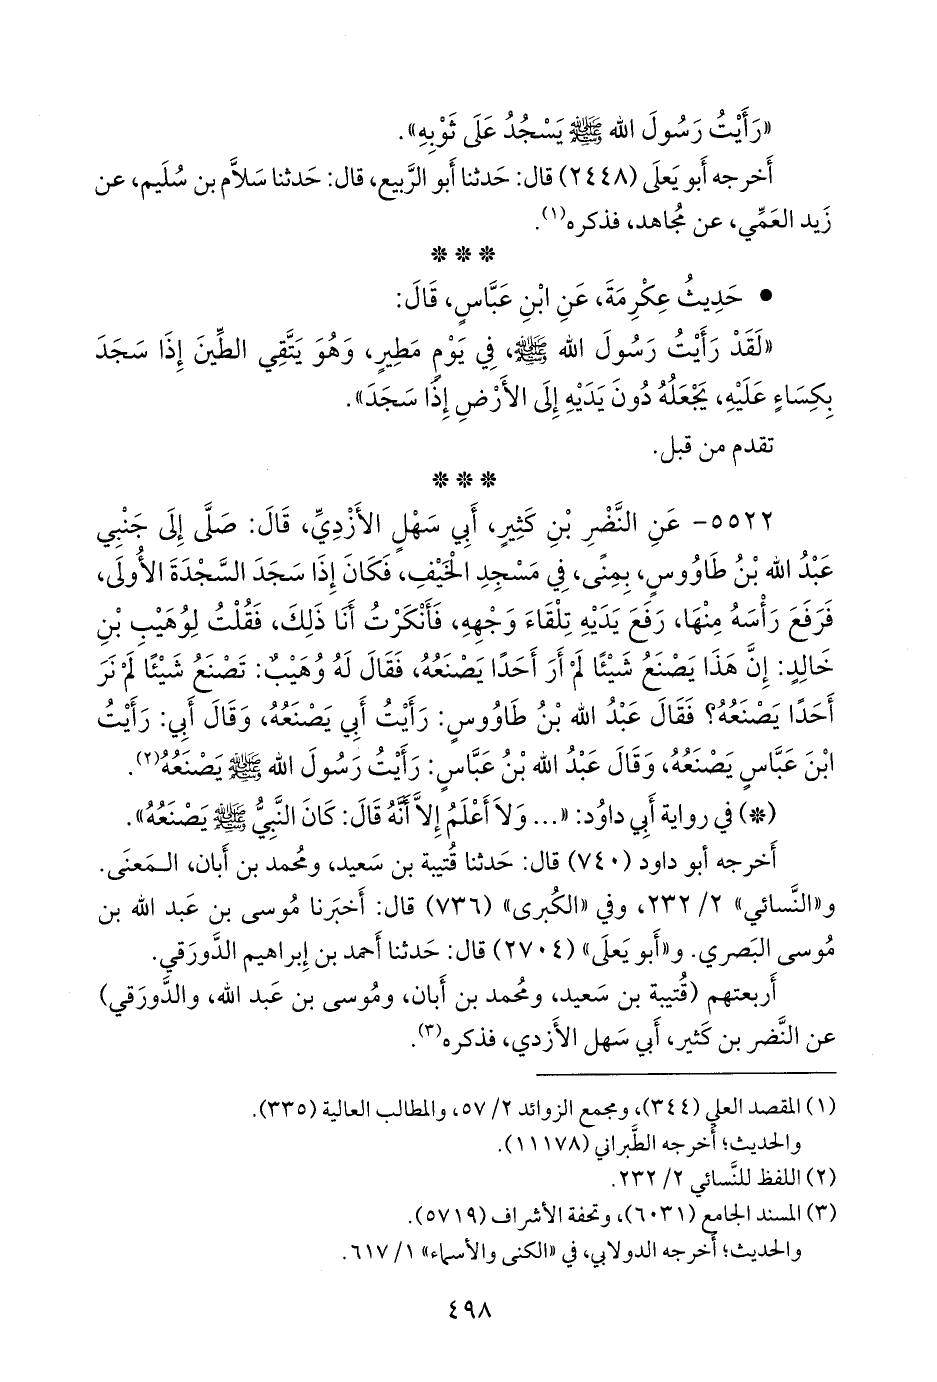 «رَأَيْتُ رَسُولَ الله ﷺ يَسْجُدُ عَلَى ثَوْبِهِ».
أَخرجه أَبو يَعلَى (٢٤٤٨) قال: حَدثنا أَبو الرَّبيع، قال: حَدثنا سَلاَّم بن سُلَيم، عن
زَيد العَمِّي، عن مُجاهد، فذكره(١).
* * *
• حَدِيثُ عِكْرِمَةَ، عَنِ ابْنِ عَبَّاسٍ، قَالَ:
«لَقَدْ رَأَيْتُ رَسُولَ الله ﷺ، فِي يَوْمٍ مَطِيرٍ، وَهُوَ يَتَّقِي الطِّينَ إِذَا سَجَدَ
بِكِسَاءٍ عَلَيْهِ، يَجْعَلُهُ دُونَ يَدَيْهِ إِلَى الأَرْضِ إِذَا سَجَدَ».
تقدم من قبل.
* * *
٥٥٢٢- عَنِ النَّضْرِ بْنِ كَثِيرٍ، أَبِي سَهْلٍ الأَزْدِيِّ، قَالَ: صَلَّى إِلَى جَنْبِي
عَبْدُ الله بْنُ طَاوُوسٍ، بِمِنًى، فِي مَسْجِدِ الْخَيْفِ، فَكَانَ إِذَا سَجَدَ السَّجْدَةَ الأُولَى،
فَرَفَعَ رَأْسَهُ مِنْهَا، رَفَعَ يَدَيْهِ تِلْقَاءَ وَجْهِهِ، فَأَنْكَرْتُ أَنَا ذَلِكَ، فَقُلْتُ لِوُهَيْبِ بْنِ
خَالِدٍ: إِنَّ هَذَا يَصْنَعُ شَيْئًا لَمْ أَرَ أَحَدًا يَصْنَعُهُ، فَقَالَ لَهُ وُهَيْبٌ: تَصْنَعُ شَيْئًا لَمْ نَرَ
أَحَدًا يَصْنَعُهُ؟ فَقَالَ عَبْدُ الله بْنُ طَاوُوسٍ: رَأَيْتُ أَبِي يَصْنَعُهُ، وَقَالَ أَبِي: رَأَيْتُ
ابْنَ عَبَّاسٍ يَصْنَعُهُ، وَقَالَ عَبْدُ الله بْنُ عَبَّاسٍ: رَأَيْتُ رَسُولَ الله ﷺ يَصْنَعُهُ(٢).
(*) في رواية أَبي داوُد: «... وَلاَ أَعْلَمُ إِلاَّ أَنَّهُ قَالَ: كَانَ النَّبِيُّ ﷺ يَصْنَعُهُ».
أَخرجه أَبو داود (٧٤٠) قال: حَدثنا قُتيبة بن سَعيد، ومُحمد بن أَبان، الـمَعنَى.
و«النَّسائي» ٢/ ٢٣٢، وفي «الكُبرى» (٧٣٦) قال: أَخبَرنا مُوسى بن عَبد الله بن
مُوسى البَصري. و«أَبو يَعلَى» (٢٧٠٤) قال: حَدثنا أَحمد بن إِبراهيم الدَّورَقي.
أَربعتهم (قُتيبة بن سَعيد، ومُحمد بن أَبان، ومُوسى بن عَبد الله، والدَّورَقي)
عن النَّضر بن كَثير، أَبي سَهل الأَزدي، فذكره(٣).
(١) المقصد العلي (٣٤٤)، ومجمع الزوائد ٢/ ٥٧، والمطالب العالية (٣٣٥).
والحديث؛ أَخرجه الطَّبراني (١١١٧٨).
(٢) اللفظ للنَّسائي ٢/ ٢٣٢.
(٣) المسند الجامع (٦٠٣١)، وتحفة الأشراف (٥٧١٩).
والحديث؛ أَخرجه الدولابي، في «الكنى والأسماء» ١/ ٦١٧.
٤٩٨